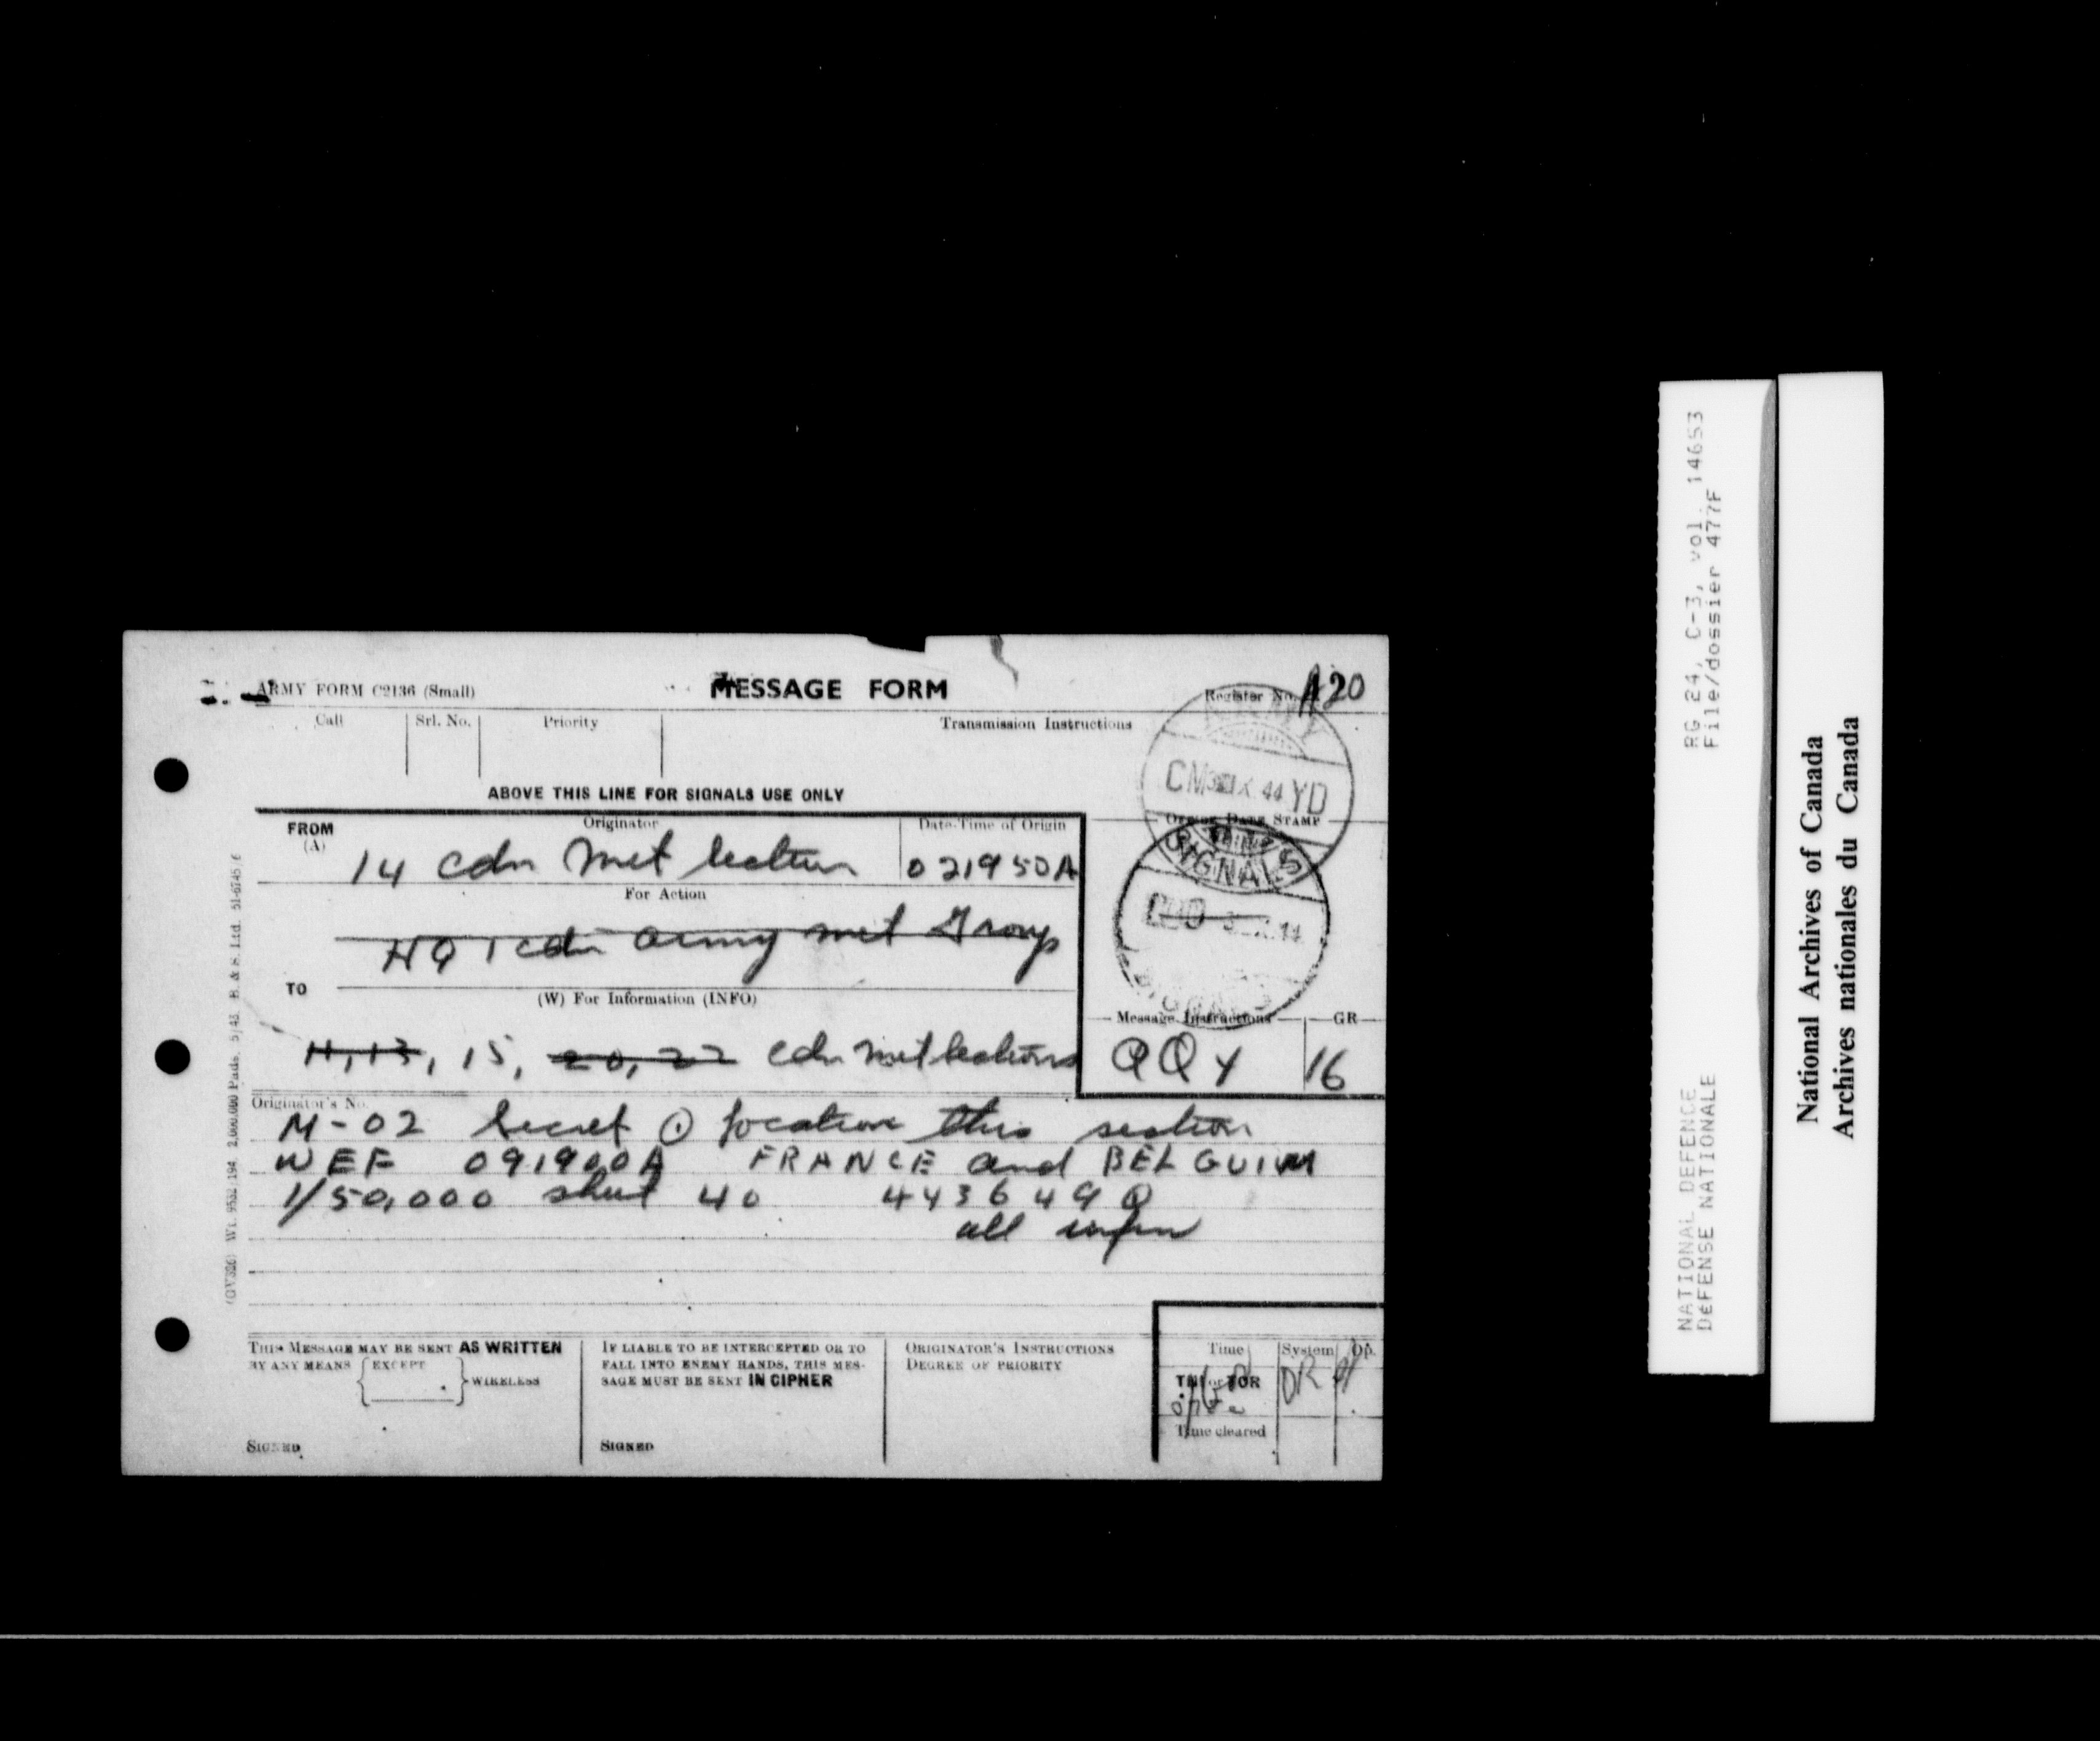 ARMY FORM C2136 (Small)
MESSAGE FORM
Register No. 120
Call Srl. No. Priority Transmission Instructions
ABOVE THIS LINE FOR SIGNALS USE ONLY
CM 44 YD
OFFICE DATE STAMP
SIGNALS
FROM (A)
Originator
Date-Time of Origin
14 Cdn Met Section 021950A
For Action
HQ 1 Cdn Army met Group
TO
(W) For Information (INFO)
11, 13, 15, 20, 22 Cdn met sections
Message Instructions GR
QQY 16
Originator's No.
M-02 Secret ⊙ location this section
WEF 091900A FRANCE and BELGUIM
1/50,000 sheet 40 443649 ⊙
all infm
THIS MESSAGE MAY BE SENT AS WRITTEN
BY ANY MEANS EXCEPT WIRELESS
SIGNED
IF LIABLE TO BE INTERCEPTED OR TO
FALL INTO ENEMY HANDS, THIS MES-
SAGE MUST BE SENT IN CIPHER
SIGNED
ORIGINATOR'S INSTRUCTIONS
DEGREE OF PRIORITY
Time System Op.
THI or TOR DR
Time cleared
(GV326) Wt. 9532/194. 2,000,000 Pads. 5/43. B. & S. Ltd. 51-6745/6
RG 24, C-3, vol. 14653
File/dossier 477F
NATIONAL DEFENCE
DéFENSE NATIONALE
National Archives of Canada
Archives nationales du Canada